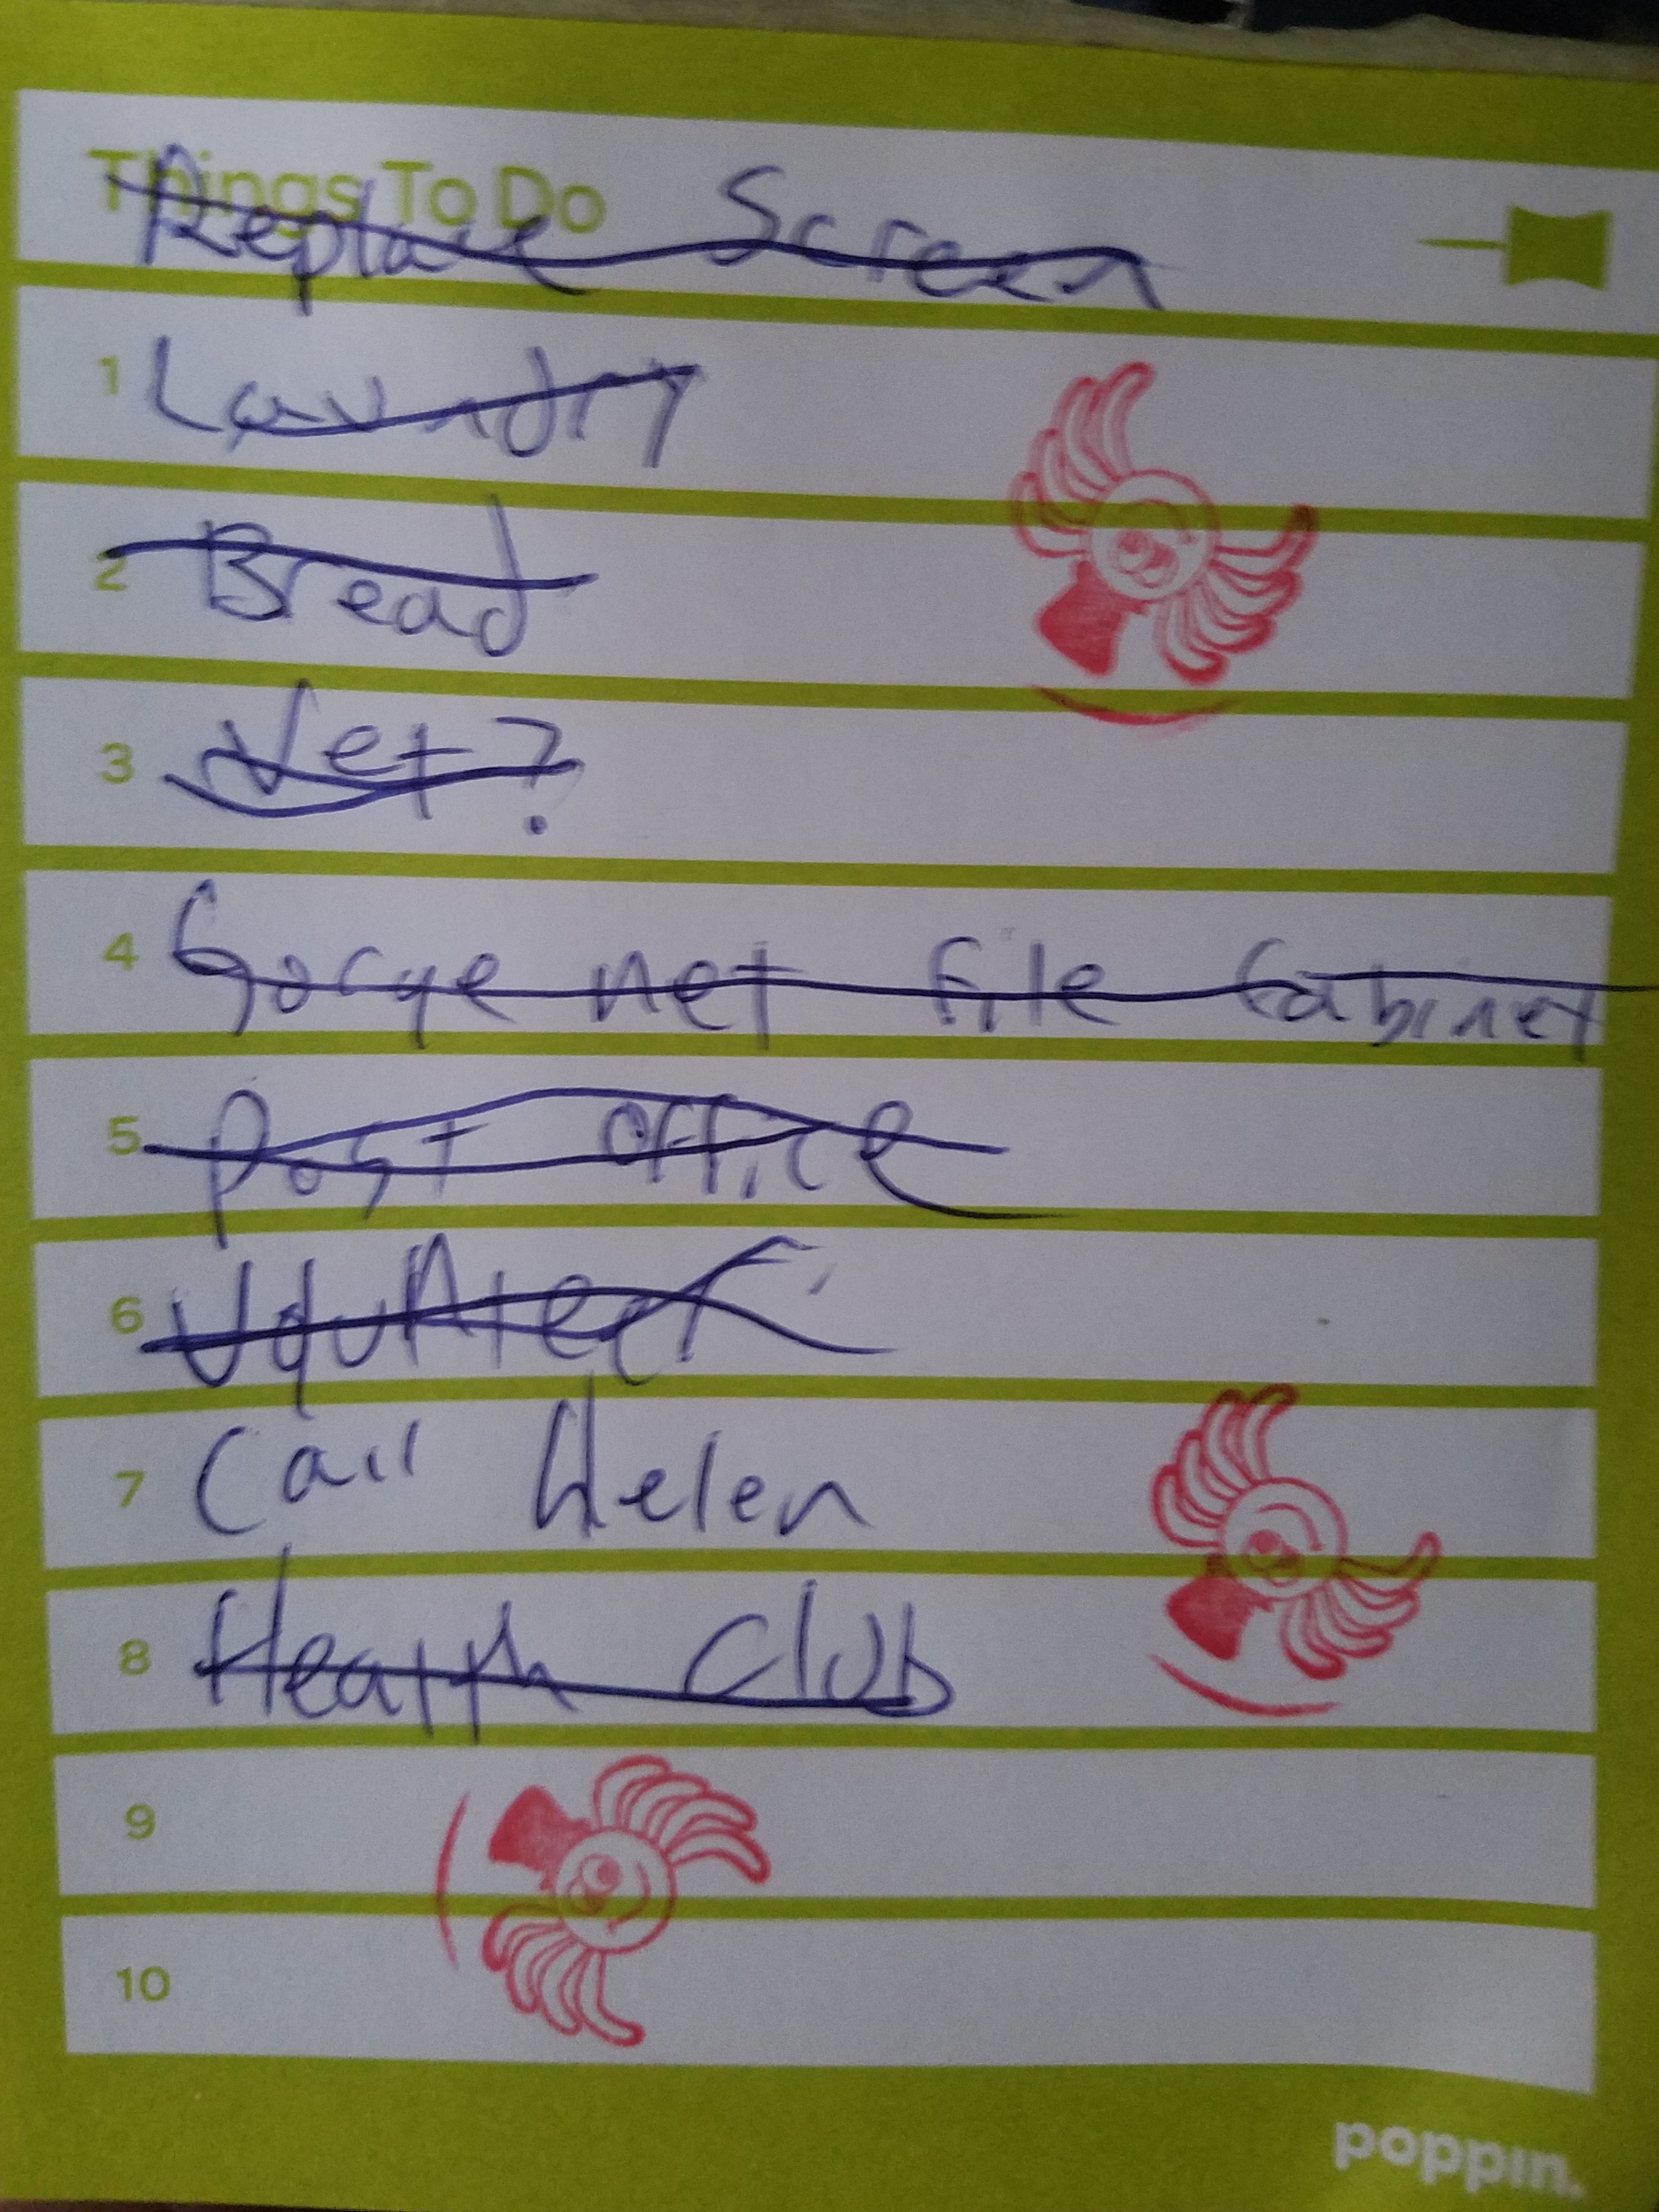 Things To Do
Replace Screen
1 Laundry
2 Bread
3 Vet?
4 Gorge net file Cabinet
5 Post office
6 Volunteer
7 Call Helen
8 Health Club
9
10
poppin.